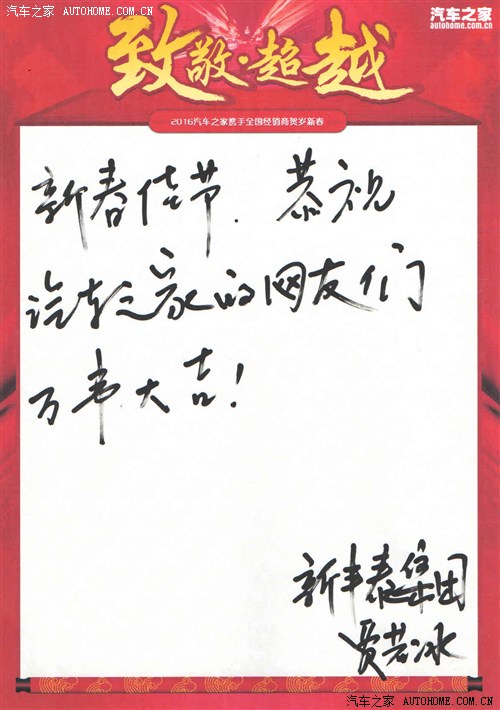 汽车之家 AUTOHOME.COM.CN
汽车之家
autohome.com.cn
致敬·超越
2016汽车之家携手全国经销商贺岁新春
新春佳节、恭祝
汽车之家的网友们
万事大吉!
新丰泰集团
贾若冰
汽车之家 AUTOHOME.COM.CN